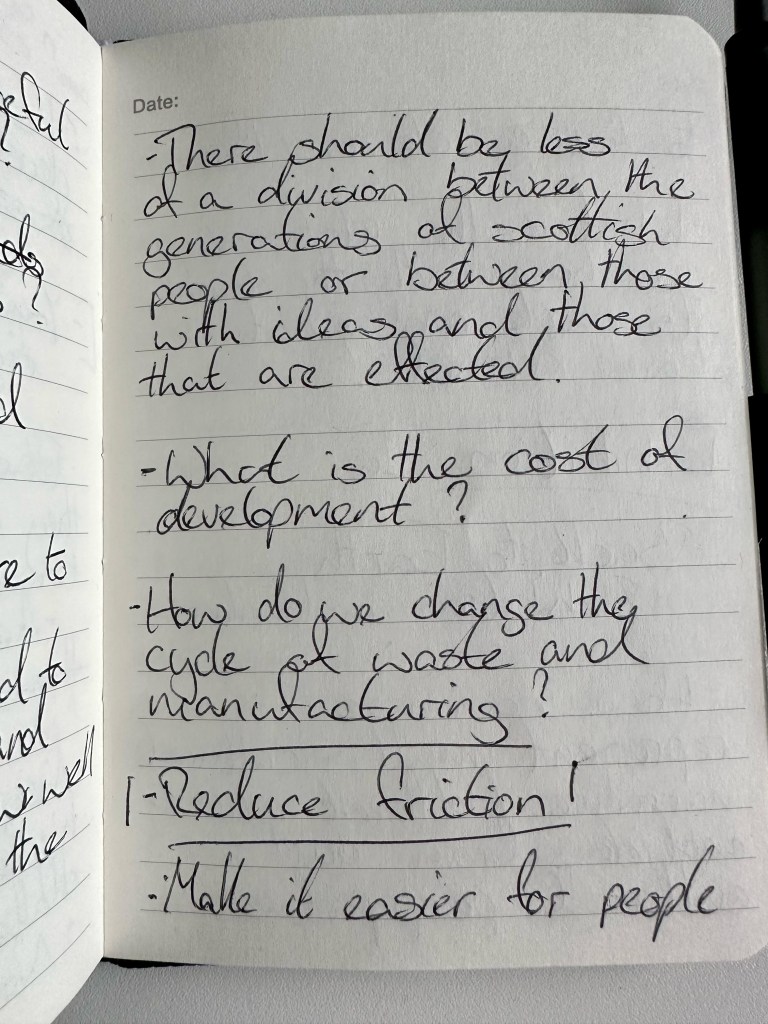 Date:
-There should be less
of a division between the
generations of scottish
people or between those
with ideas and those
that are effected.
-What is the cost of
development ?
-How do we change the
cycle of waste and
manufacturing ?
|-Reduce friction|
-Make it easier for people
?
?
e to
d to
and
well
the